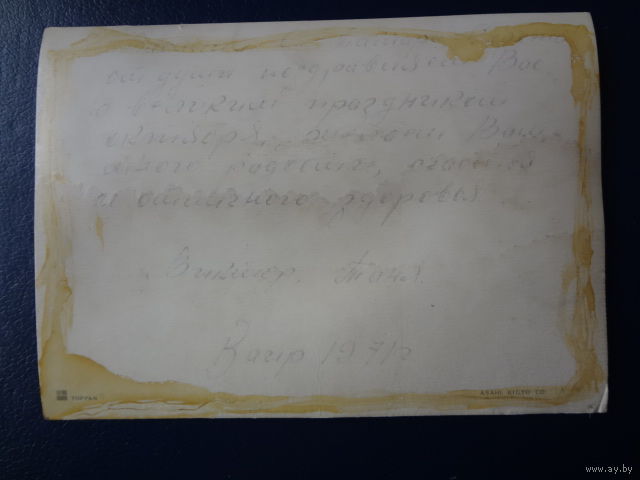 от души поздравляем Вас
с великим праздником
октября, желаем Вам
много радости, счастья
и отличного здоровья
Виктор, Таня.
1971г
TOPPAN
ASAHI KIGYO CO
www.ay.by